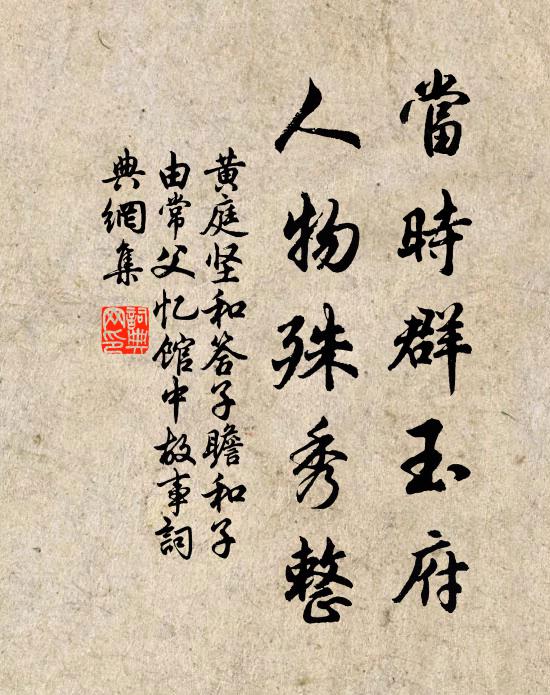 當時群玉府
人物殊秀整
黄庭坚和答子瞻和子
由常父忆馆中故事詞
典網集
詞典
网印